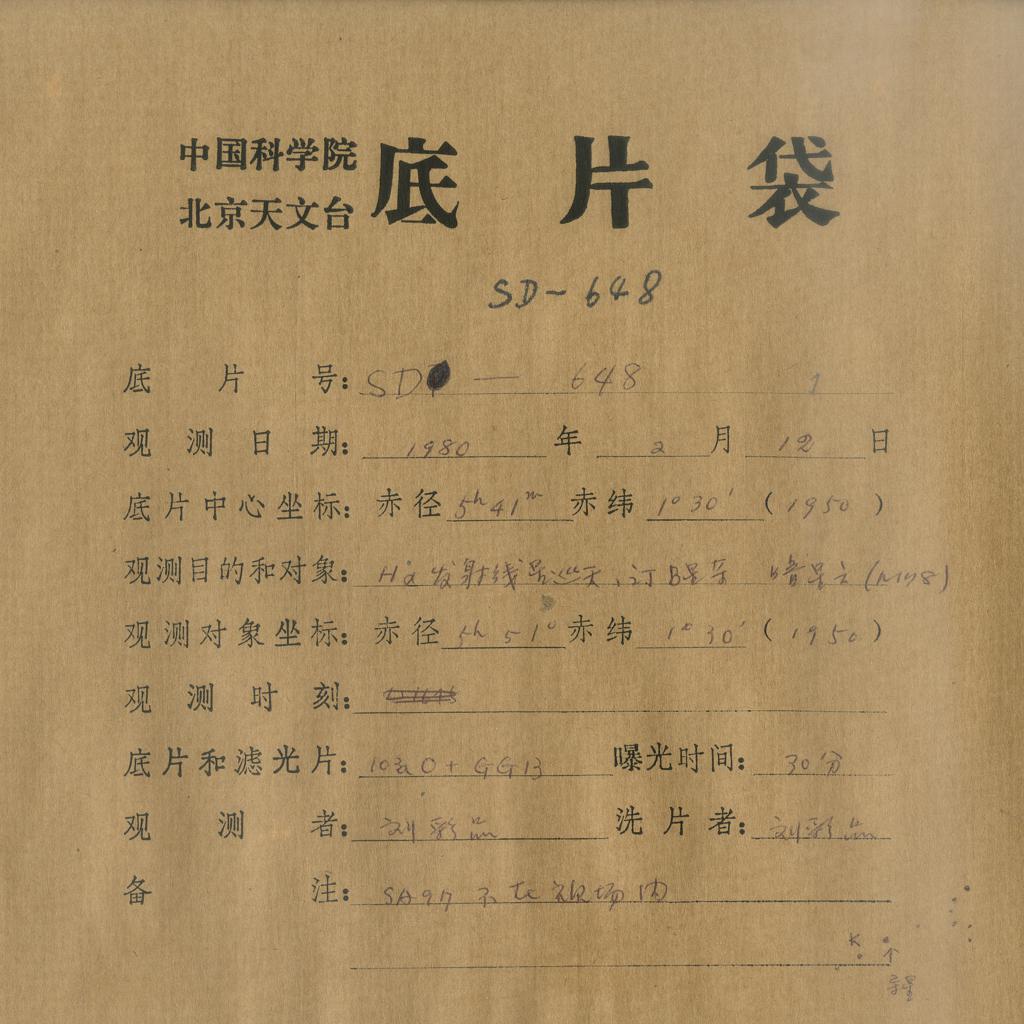 中国科学院
北京天文台 底片袋
SD-648
底片号: SD — 648 1
观测日期: 1980 年 2 月 12 日
底片中心坐标: 赤径 5h 41m 赤纬 1° 30′ (1950)
观测目的和对象: Hα 发射线星巡天, 订B星等 暗星云 (M78)
观测对象坐标: 赤径 5h 51° 赤纬 1° 30′ (1950)
观测时刻:
底片和滤光片: 103a O + GG13 曝光时间: 30分
观测者: 刘彩品 洗片者: 刘彩品
备注: SA97 不在视场内
K 个
导星